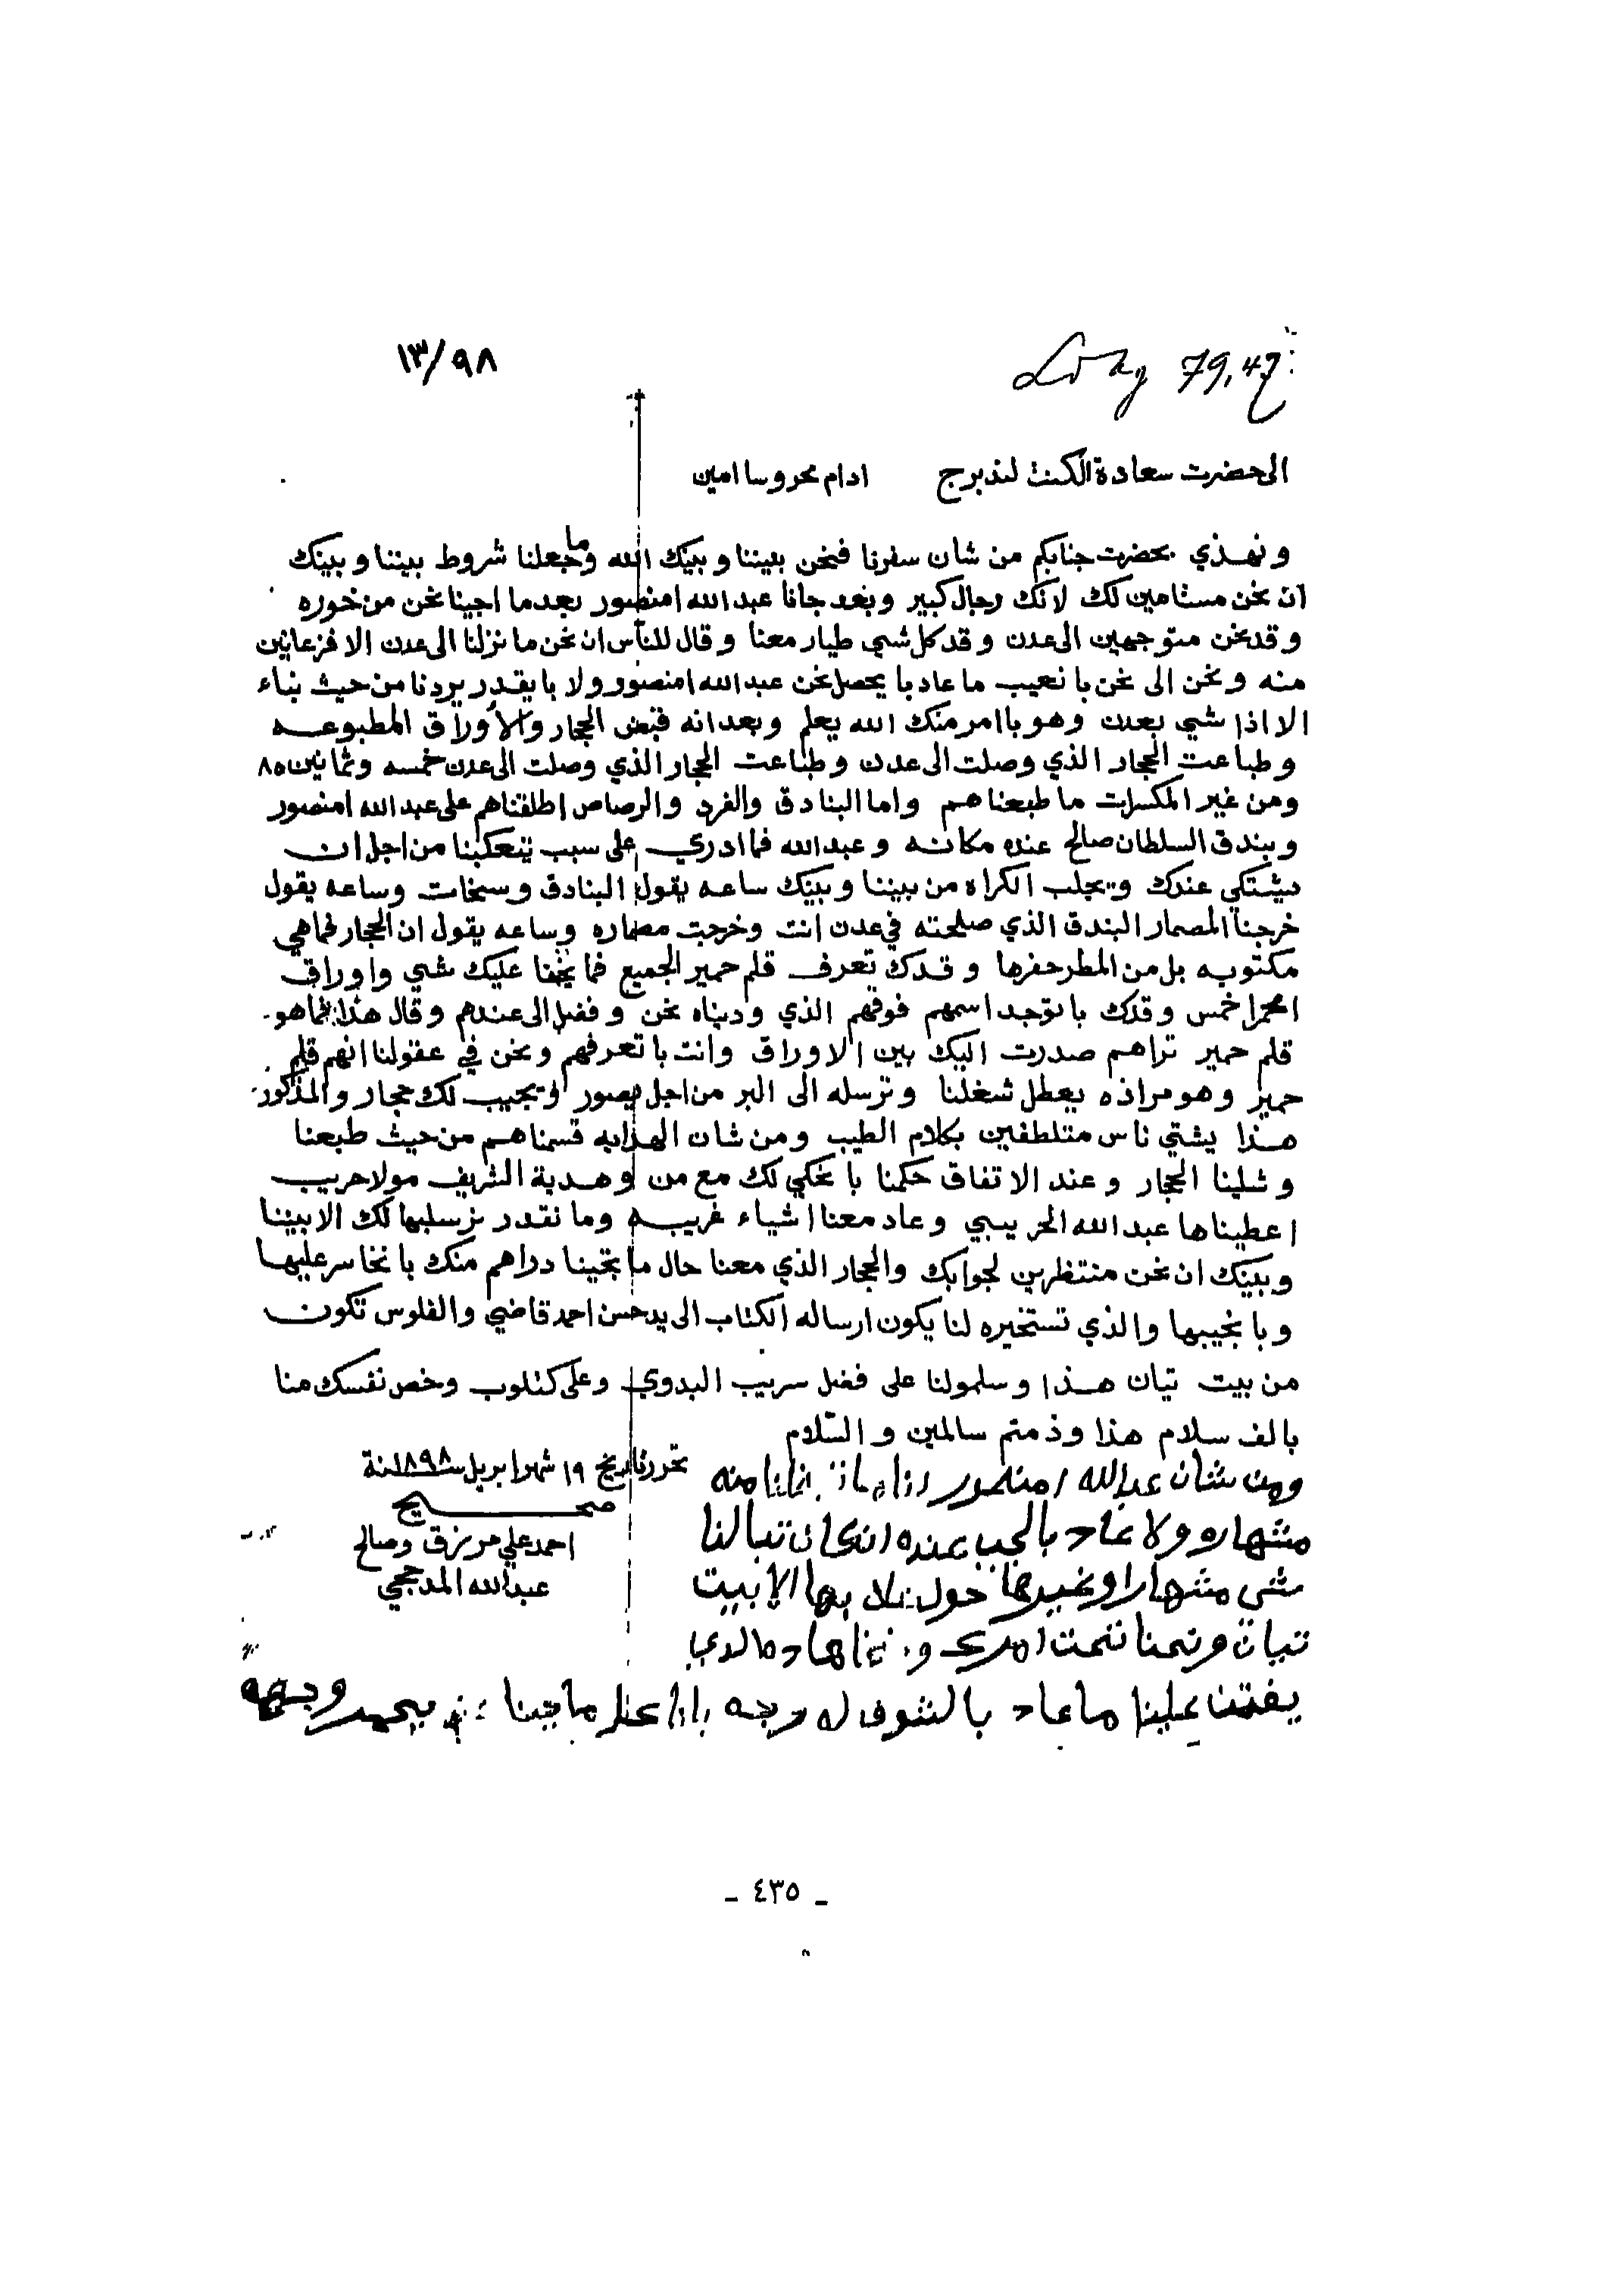 ١٣/٩٨
79,47
الى حضرت سعادة الكنت لندبرج ادام محروسا امين
ونهذي بحضرت جنابكم من شان سفرنا فنحن بيننا وبينك الله وما جعلنا شروط بيننا وبينك
ان نحن مستامين لك لانك رجال كبير وبعد جانا عبدالله امنصور بعدما اجينا نحن من خوره
وقد نحن متوجهين الى عدن وقد كل شي طيار معنا وقال للناس ان نحن ما نزلنا الى عدن الا فزعانين
منه ونحن الى نحن با نعيب ما عاد با يحصل نحن عبدالله امنصور ولا با يقدر يردنا من حيث بناء
الا اذا شي بعدن وهو باامر منك الله يعلم وبعد انه قبض الحجار والاوراق المطبوعه
وطباعت الحجار الذي وصلت الى عدن وطباعت الحجار الذي وصلت الى عدن خمسه وثمانين ٨٥
ومن غير المكسرات ما طبعناهم واما البنادق والفرد والرصاص اطلقناهم على عبدالله امنصور
وبندق السلطان صالح عنده مكانه وعبدالله فما ادري على سبب يتعكبنا من اجل ان
يشتكي عندك ويجلب الكراه من بيننا وبينك ساعه يقول البنادق وسخات وساعه يقول
خرجنا المصمار البندق الذي صلحته في عدن انت وخرجت مصماره وساعه يقول ان الحجار فماهي
مكتوبه بل من المطر حفرها وقدك تعرف قلم حمير الجميع فما يخفا عليك شي واوراق
خمس وقدك با توجد اسمهم فوقهم الذي وديناه نحن وفضل الى عندهم وقال هذا فماهو
قلم حمير تراهم صدرت اليك بين الاوراق وانت با تعرفهم ونحن في عقولنا انهم قلم
حمير وهو مراده يعطل شغلنا وترسله الى البر من اجل يصور ويجيب لك حجار والمذكور
هذا يشتي ناس متلطفين بكلام الطيب ومن شان الهدايه قسمناهم من حيث طبعنا
وشلينا الحجار وعند الاتفاق حكمنا با نحكي لك مع من وهدية الشريف مولا حريب
اعطيناها عبدالله الحريبي وعاد معنا اشياء غريبه وما نقدر نرسلبها لك الا بيننا
وبينك ان نحن منتظرين لجوابك والحجار الذي معنا حال ما تجينا دراهم منك با نخاسر عليها
وبا نجيبها والذي تستخيره لنا يكون ارساله الكتاب الى يد حسن احمد قاضي والفلوس تكون
من بيت تيان هذا وسلمولنا على فضل سريب البدوي وعلى كتلوب وخص نفسك منا
بالف سلام هذا وذمتم سالمين والسلام
تحرر تاريخ ١٩ شهر ابريل سنة ١٨٩٨
صحيح
احمد علي مرزق وصالح
عبدالله المدحجي
ومن شان عبدالله امنصور منه
مشهاره ولا عاد بالجب عنده ان كان تبالنا
شي مشهارا وغيرها حول الا بيت
تيان ونحنا تحت امرك
يفتن علينا ما عاد بالشوف له وجه